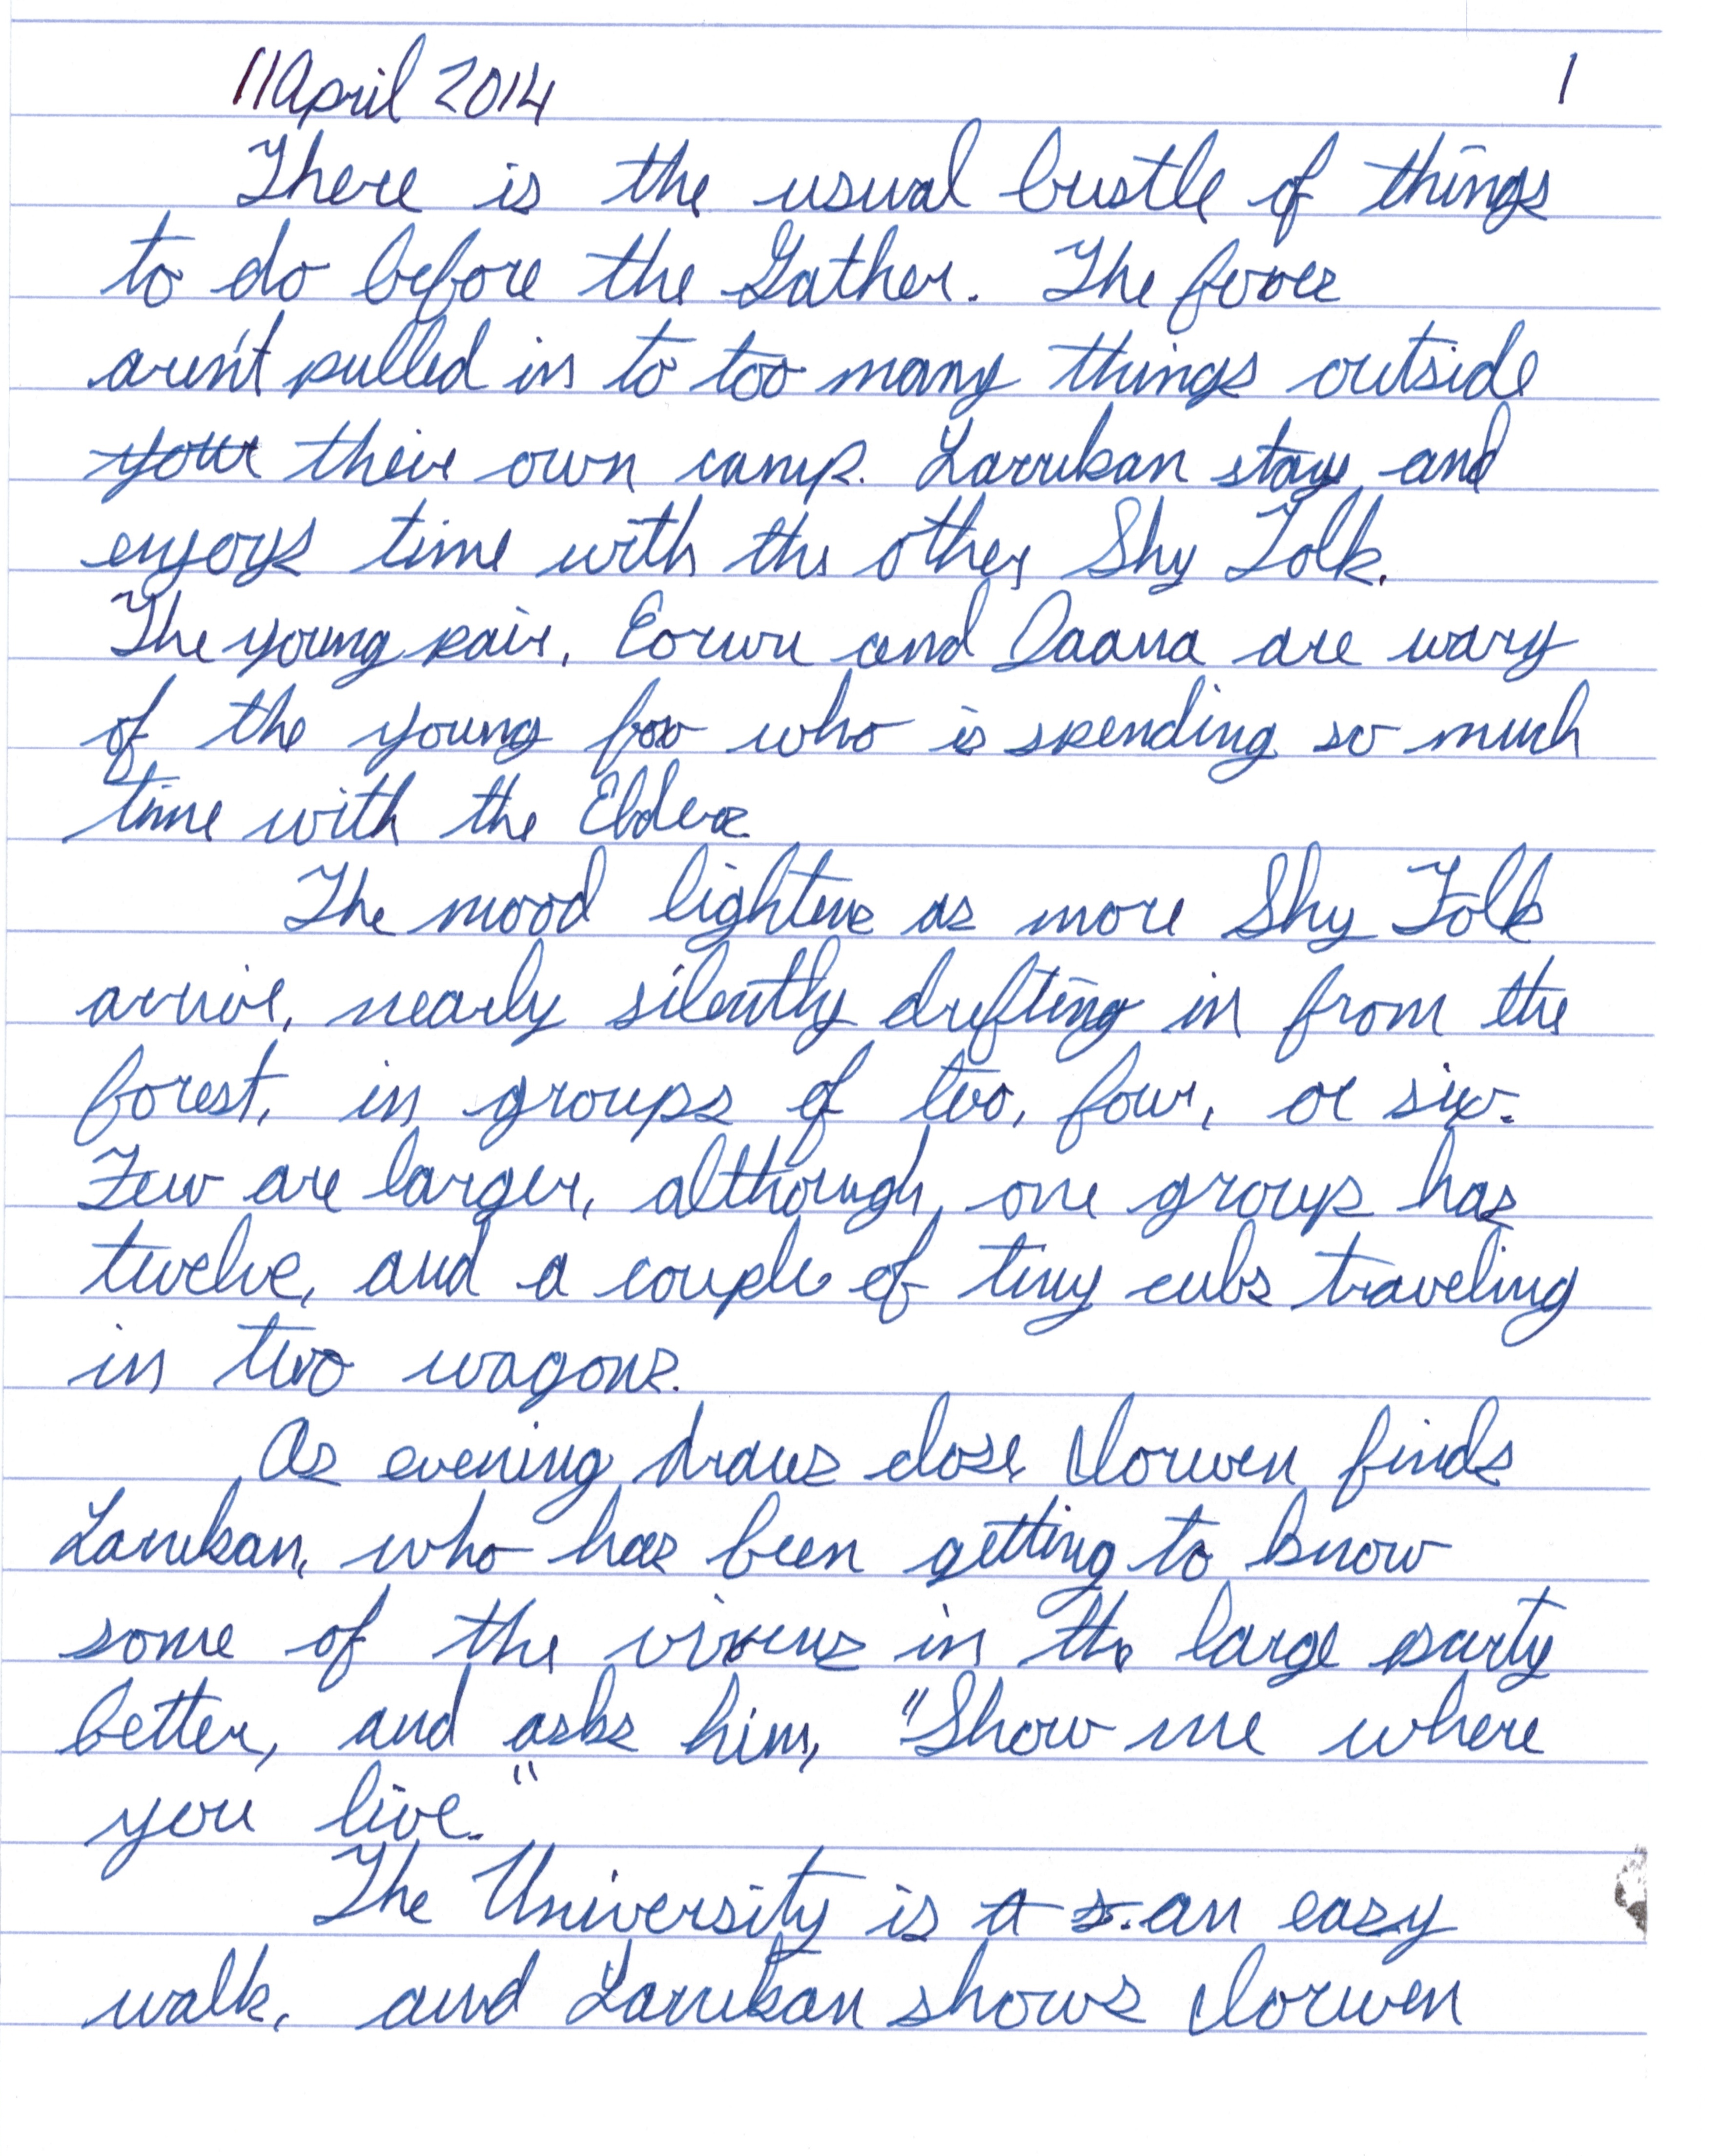 11 April 2014 1
There is the usual bustle of things
to do before the Gather. The foxes
aren't pulled in to too many things outside
your their own camp. Larrukan stays and
enjoys time with the other Shy Folk.
The young pair, Eorwu and Daana are wary
of the young fox who is spending so much
time with the Elders
The mood lightens as more Shy Folk
arrive, nearly silently drifting in from the
forest, in groups of two, four, or six.
Few are larger, although one group has
twelve, and a couple of tiny cubs traveling
in two wagons.
As evening draws close, Iorwen finds
Larrukan, who has been getting to know
some of the vixens in the large party
better, and asks him, "Show me where
you live."
The University is a s. an easy
walk, and Larrukan shows Iorwen